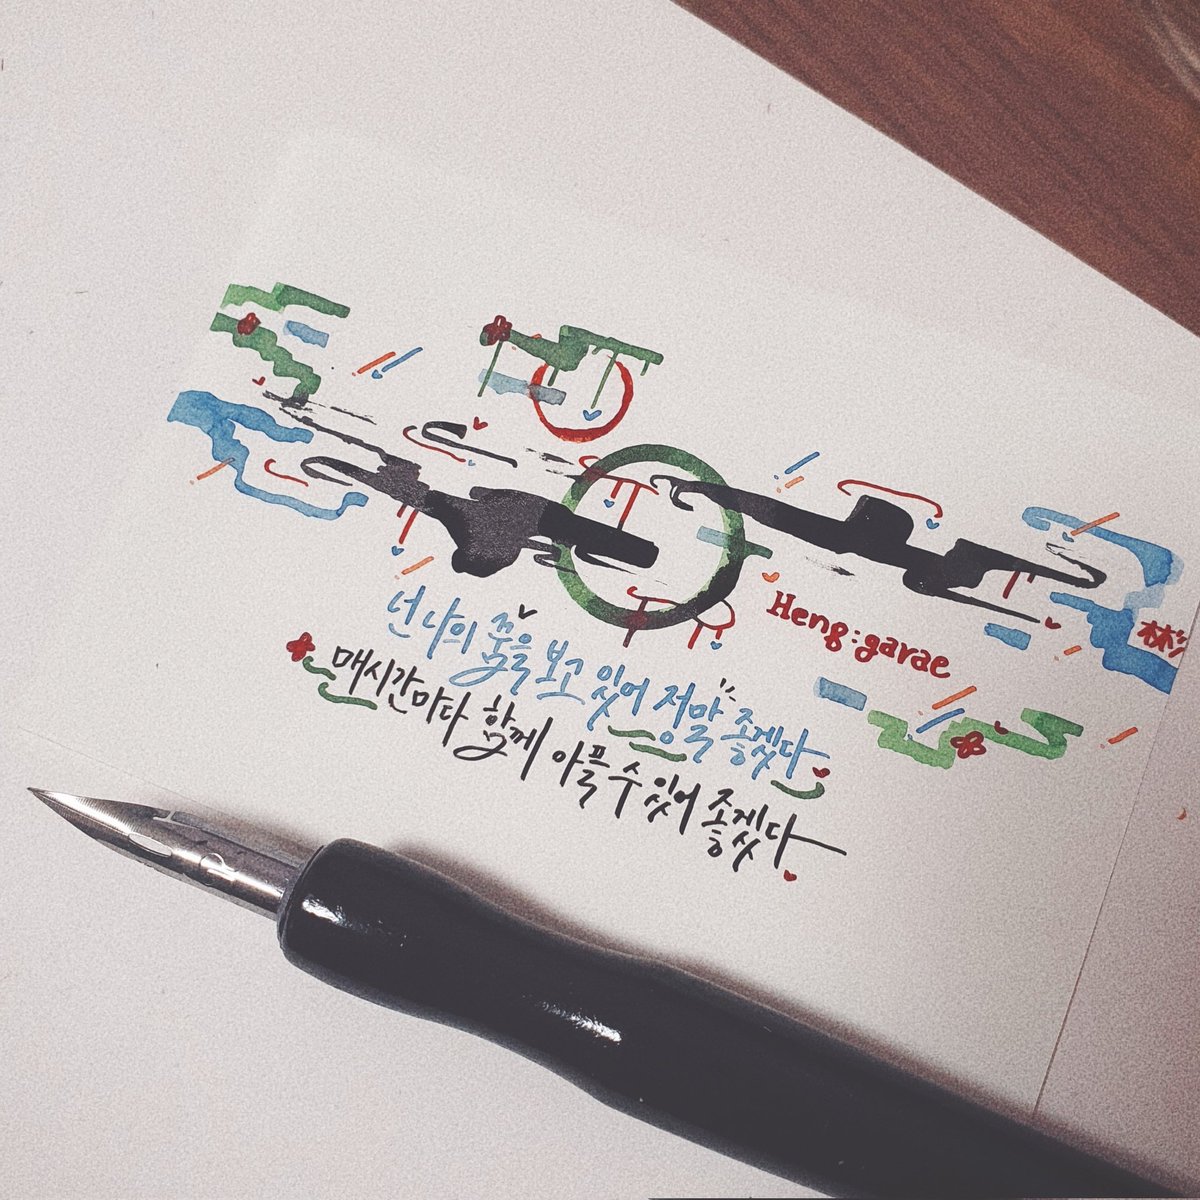 Heng:garae
林
넌 나의 꿈을 보고 있어 정말 좋겠다
매시간마다 함께 아플 수 있어 좋겠다